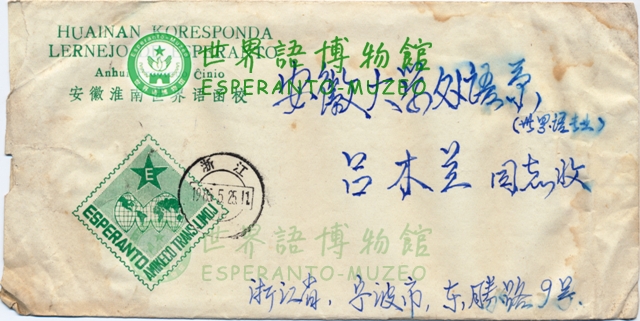 HUAINAN KORESPONDA
LERNEJO
Anhui Ĉinio
安徽淮南世界语函校
世界語博物館
ESPERANTO-MUZEO
安徽大学外语系
(世界语专业)
吕木兰 同志收
E
ESPERANTO
AMIKECO TRANS LIMOJ
浙江
1985.5.25.11
世界語博物館
ESPERANTO-MUZEO
浙江省,宁波市,东胜路9号.